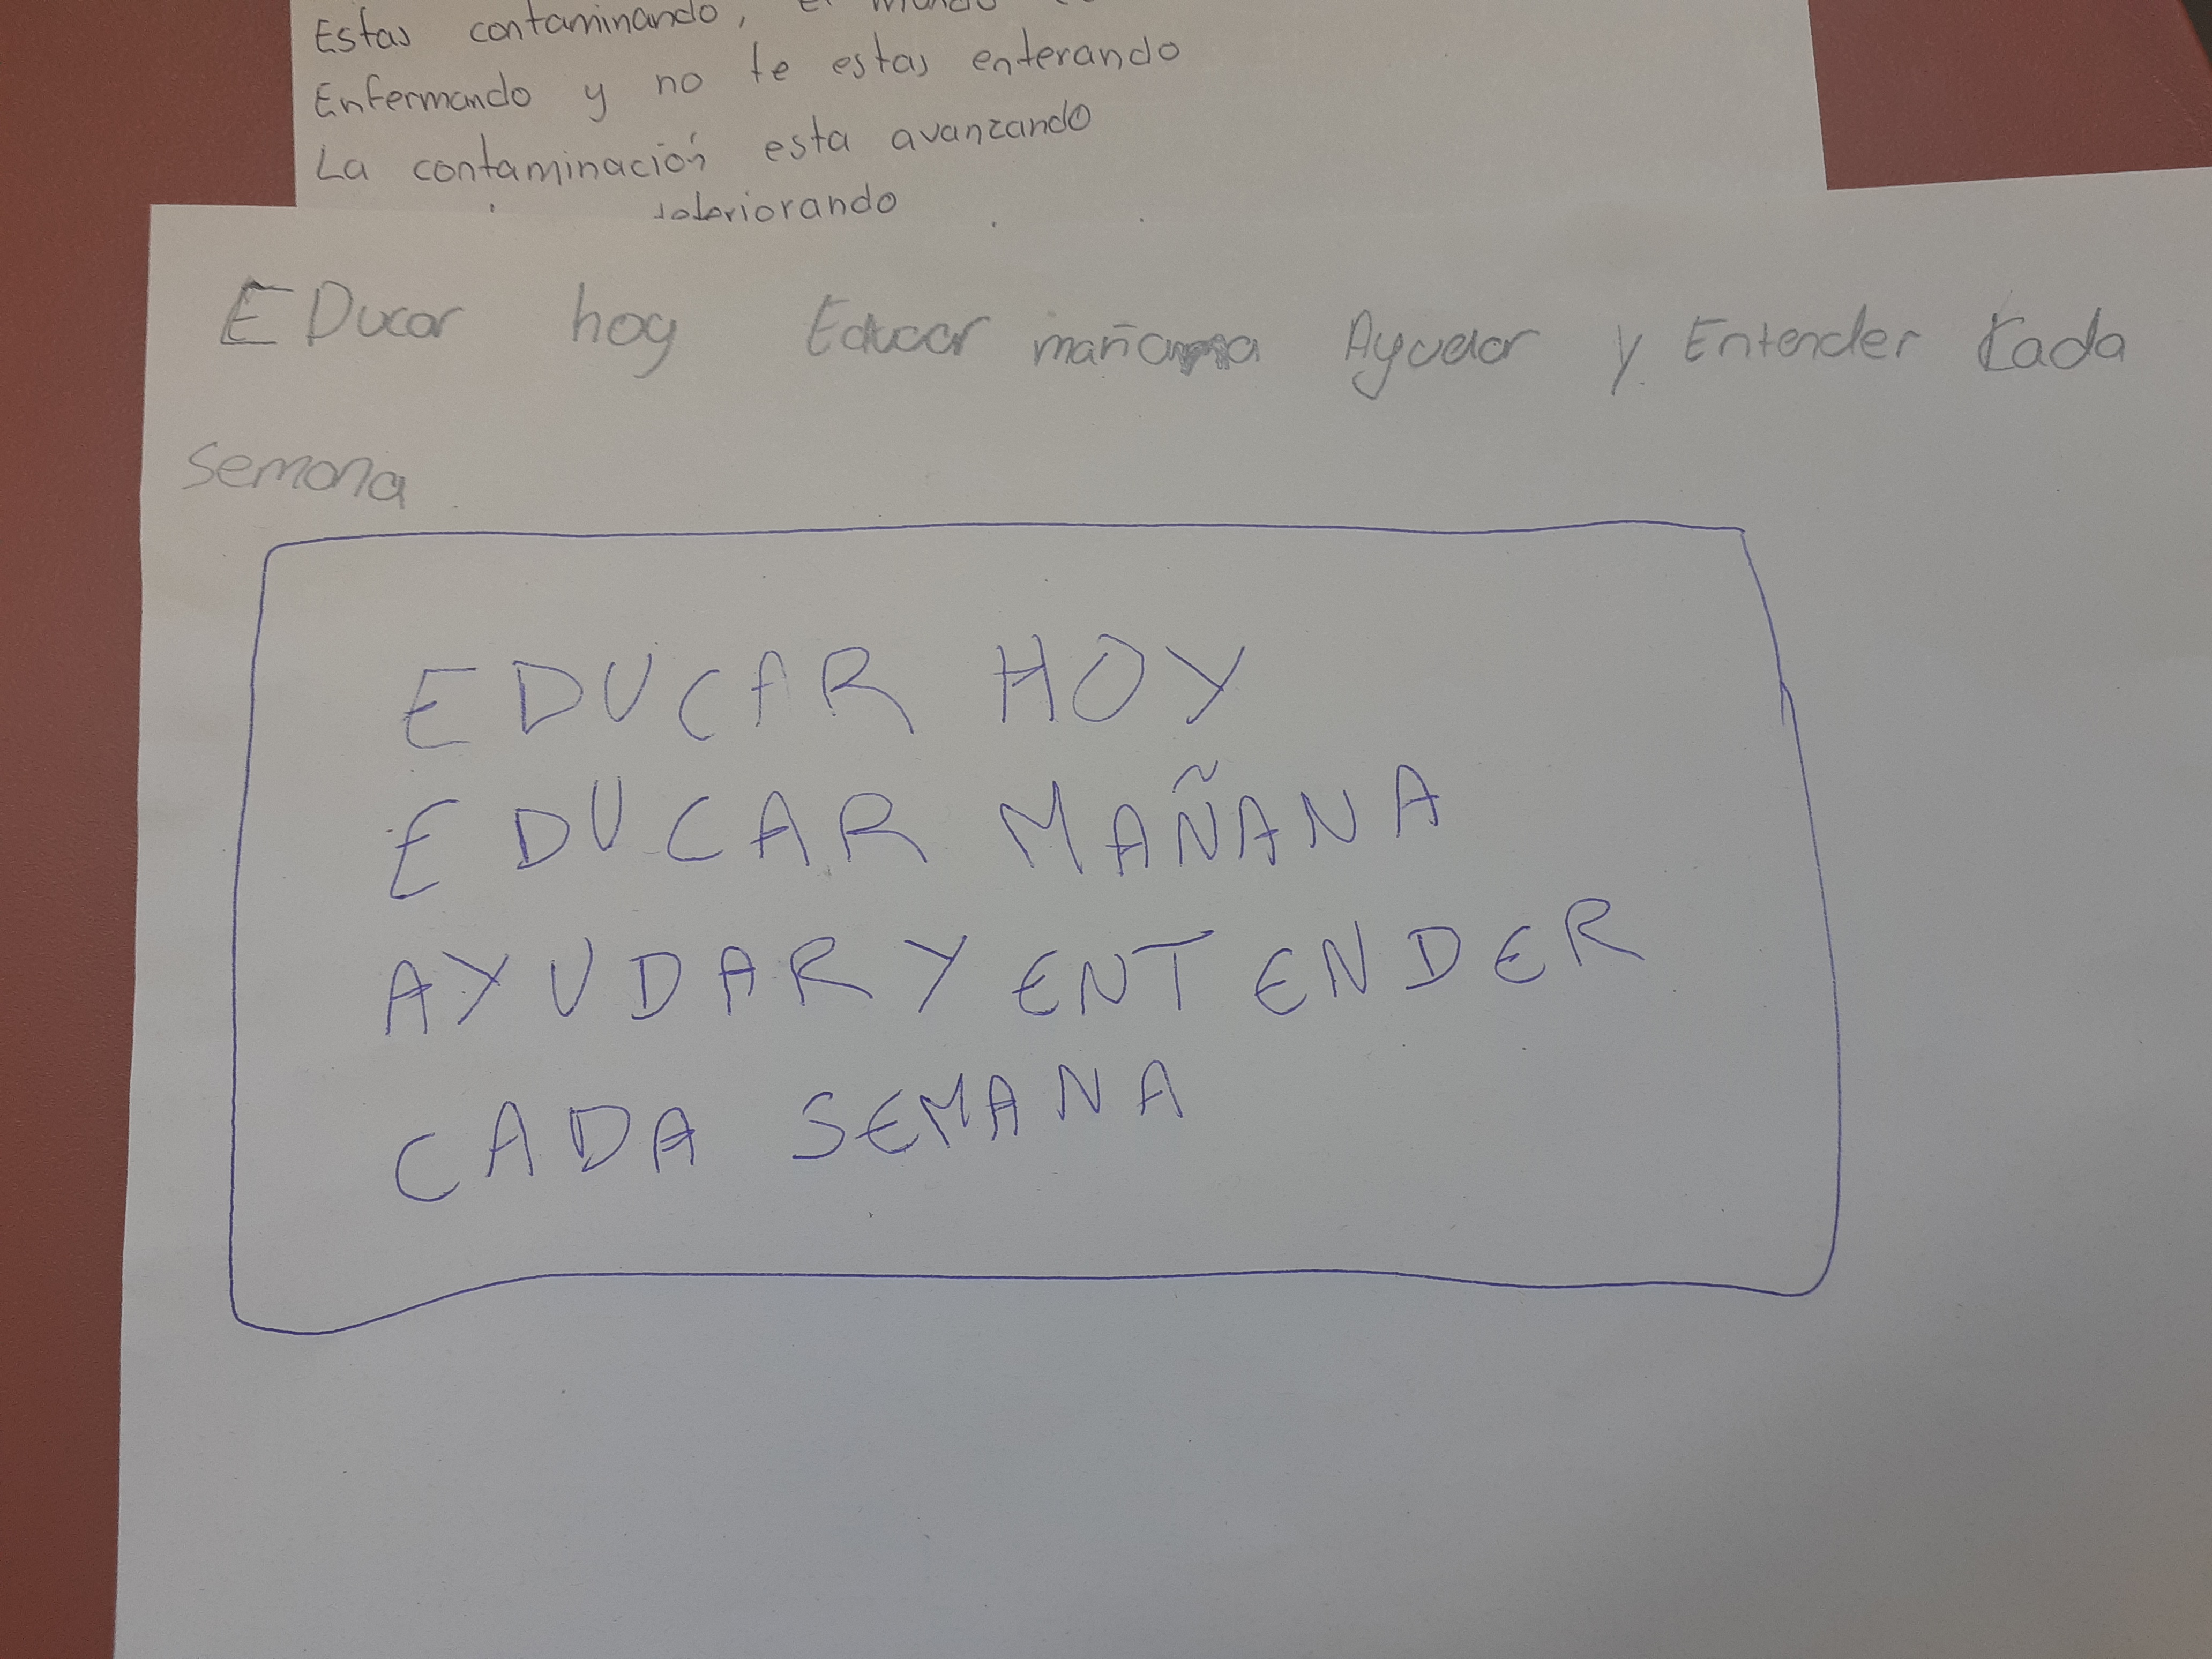 Estas contaminando, el mundo
Enfermando y no te estas enterando
La contaminación esta avanzando
EDucar hoy Educar mañana Ayudar y Entender Cada
semana
EDUCAR HOY
EDUCAR MAÑANA
AYUDAR Y ENTENDER
CADA SEMANA